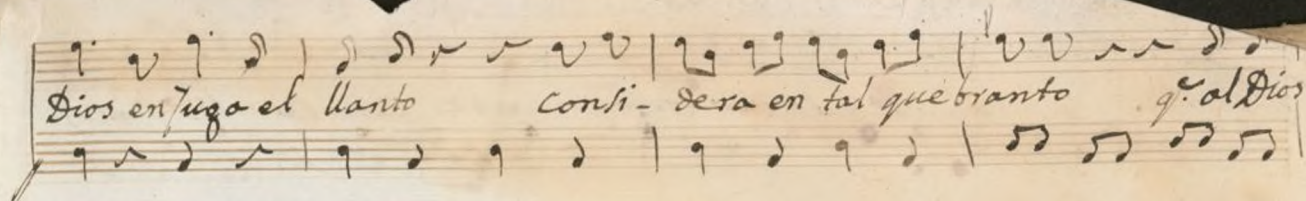 Dios enjuga el llanto Consi- dera en tal quebranto q.e al Dios